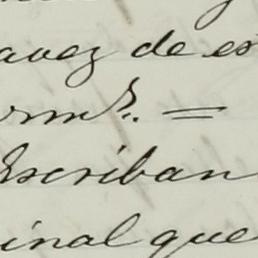 avez de es
rmr. =
Escriban
inal que